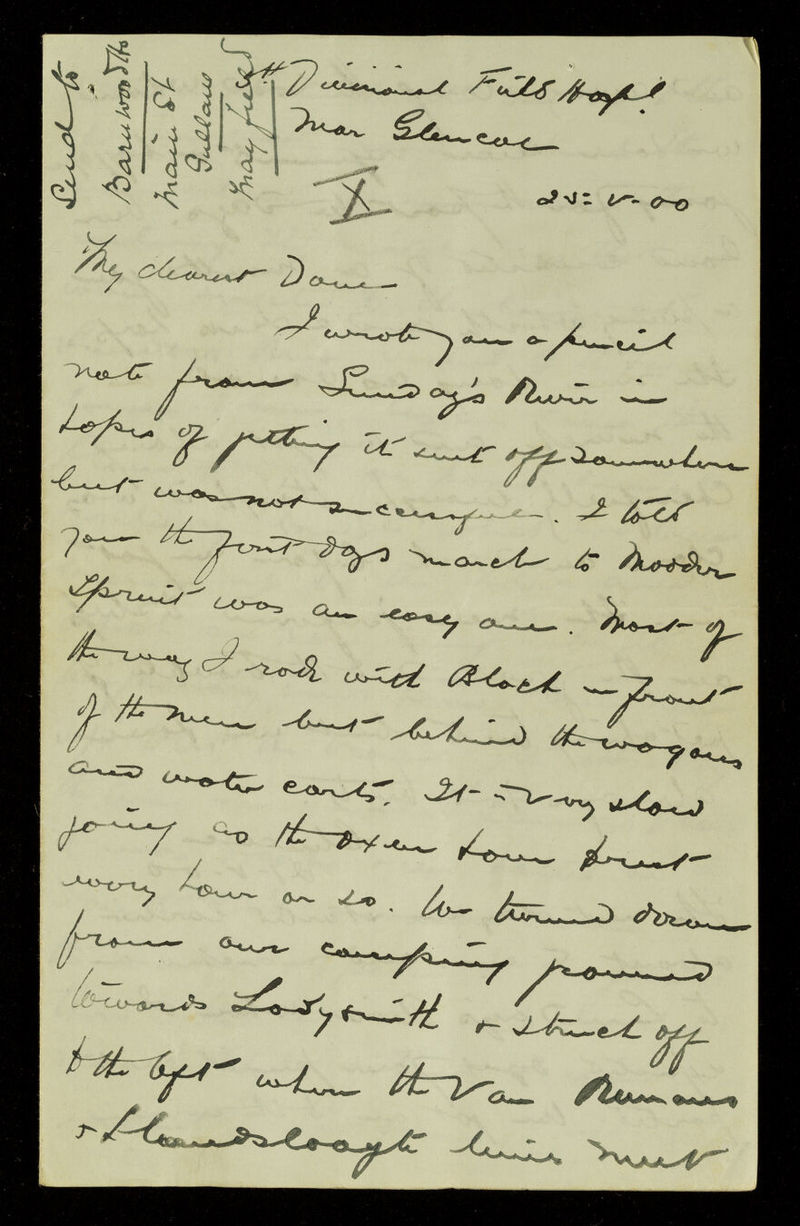 Send to
Barnwood Ho
Main St
Gullane
Mayfield
th Divisional Field Hospl.
Near Glencoe
X
25-V-00
My dearest Dove
I wrote you a pencil
note from Sunday's River in
hopes of getting it sent off somewhere
but was not successful. I told
you the first days march to Modder
Spruit was an easy one. Most of
the way I rode with Black in front
of the men but behind the wagons
and water carts. It is very slow
going as the oxen have to rest
every hour or so. We turned down
from our camping ground
towards Ladysmith & struck off
to the left when the Van Reenans
& Elandslaagte lines meet